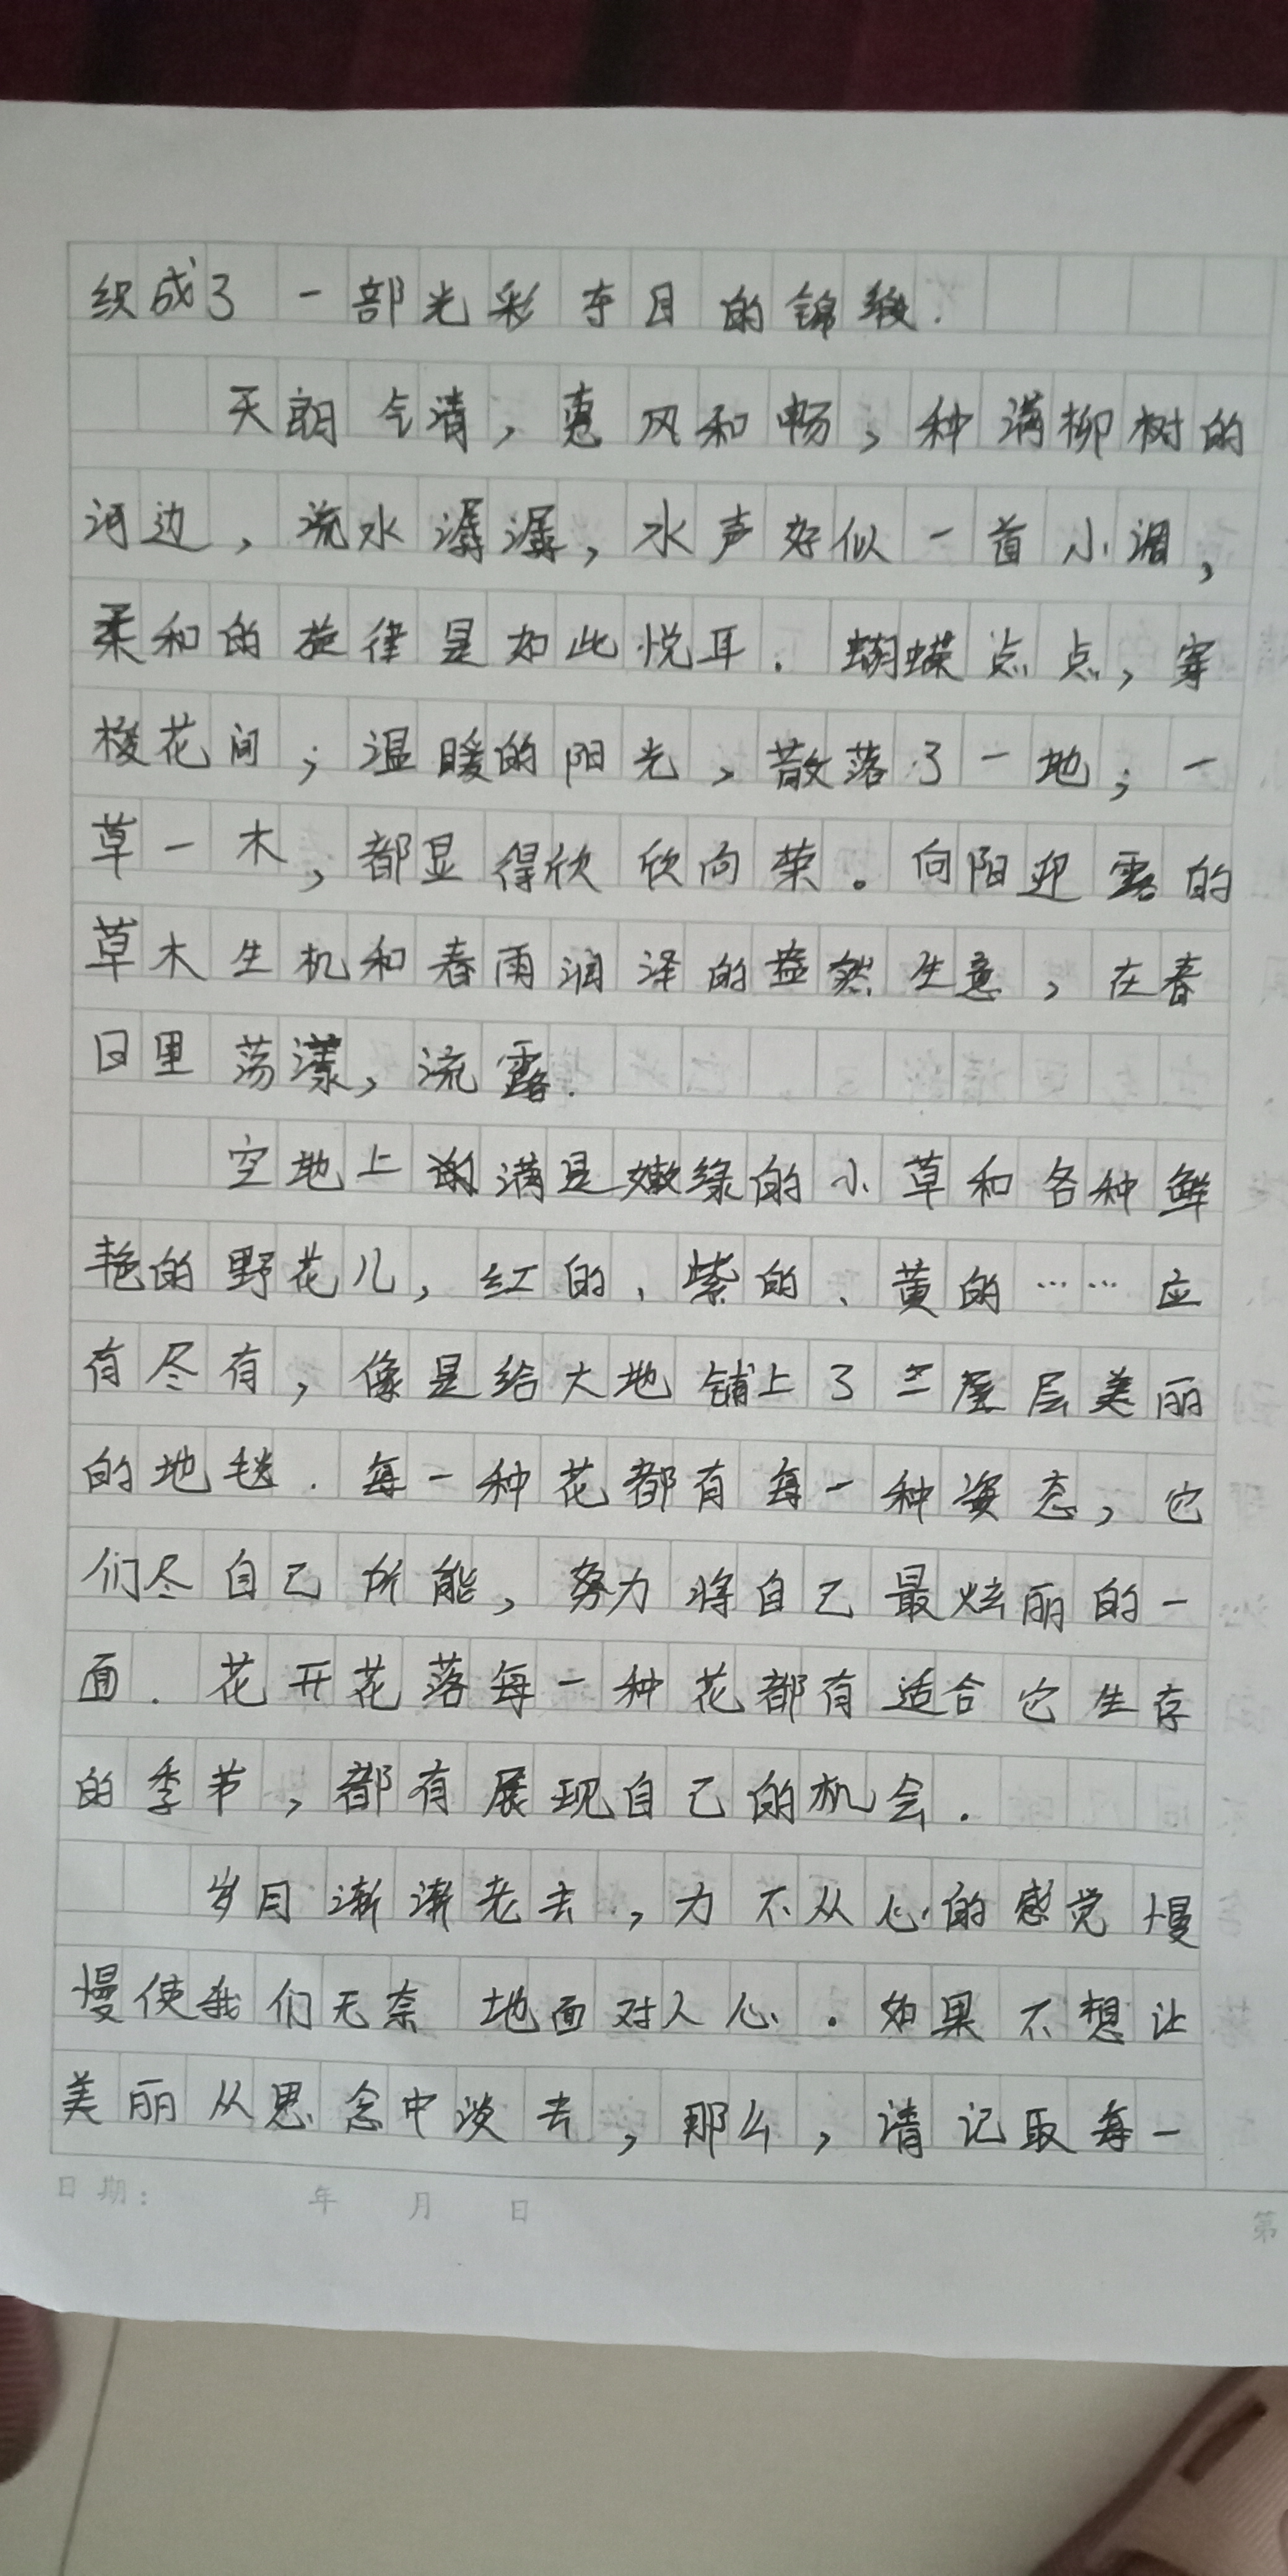 织成了一部光彩夺目的锦缎.
天朗气清，惠风和畅，种满柳树的
河边，流水潺潺，水声好似一首小调，
柔和的旋律是如此悦耳．蝴蝶点点，穿
梭花间；温暖的阳光，散落了一地；一
草一木，都显得欣欣向荣。向阳迎露的
草木生机和春雨润泽的盎然生意，在春
日里荡漾，流露．
空地上满是嫩绿的小草和各种鲜
艳的野花儿，红的、紫的、黄的……应
有尽有，像是给大地铺上了层美丽
的地毯．每一种花都有每一种姿态，它
们尽自己所能，努力将自己最炫丽的一
面．花开花落每一种花都有适合它生存
的季节，都有展现自己的机会．
岁月渐渐老去，力不从心的感觉慢
慢使我们无奈地面对人心．如果不想让
美丽从思念中淡去，那么，请记取每一
日期： 年 月 日
第